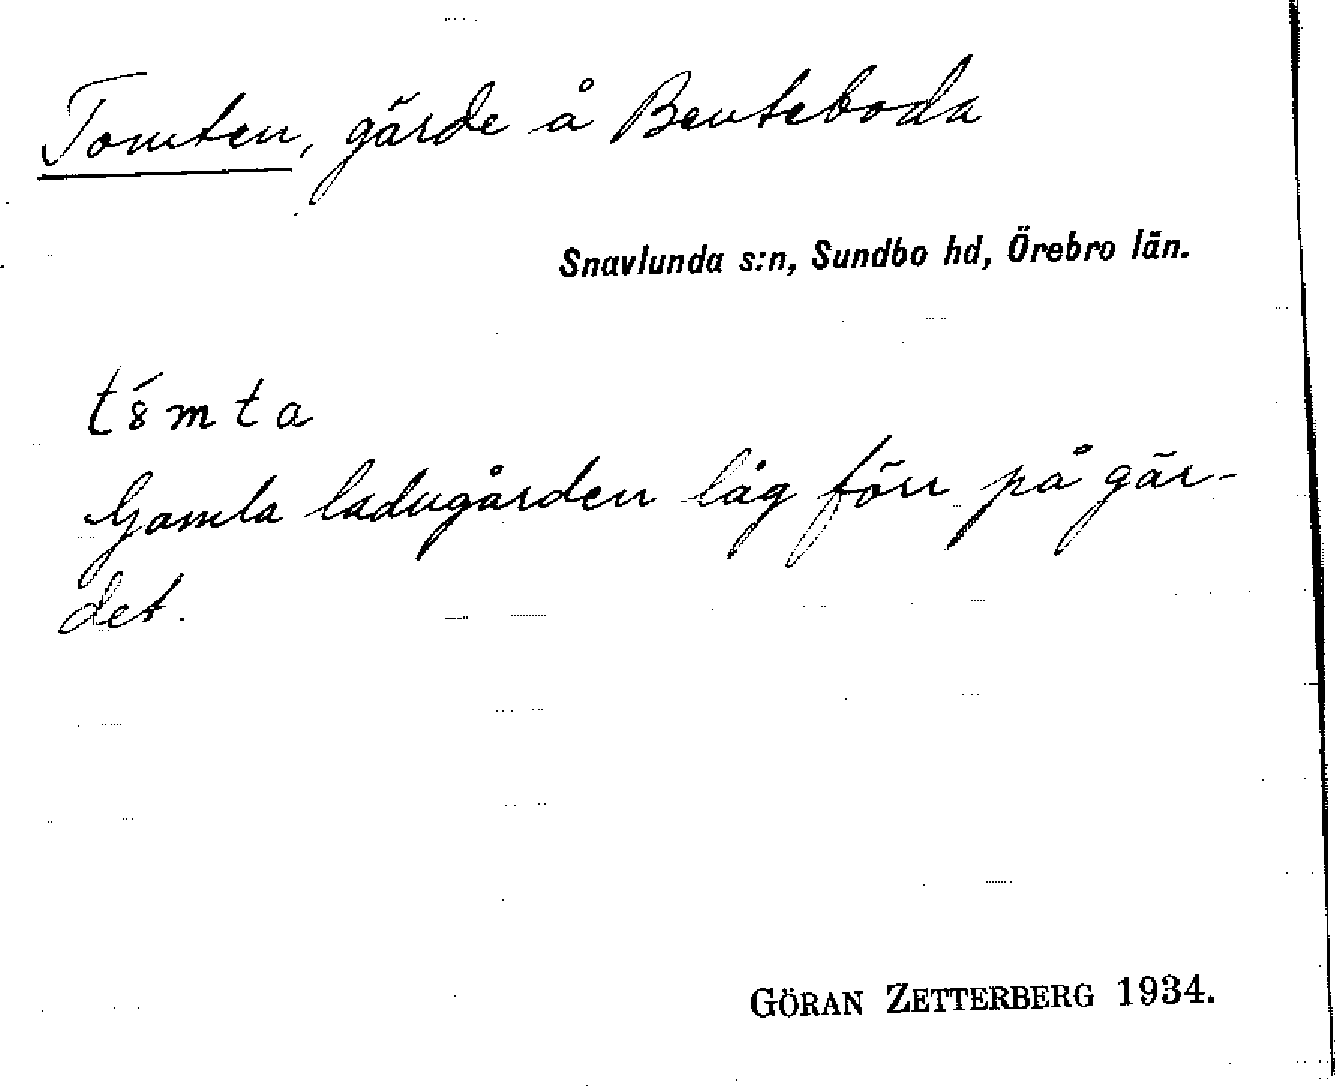 Tomten, gärde å Benteboda
Snavlunda s:n, Sundbo hd, Örebro län.
t8́mta
Gamla ladugården låg förr på gär-
det.
GÖRAN ZETTERBERG 1934.